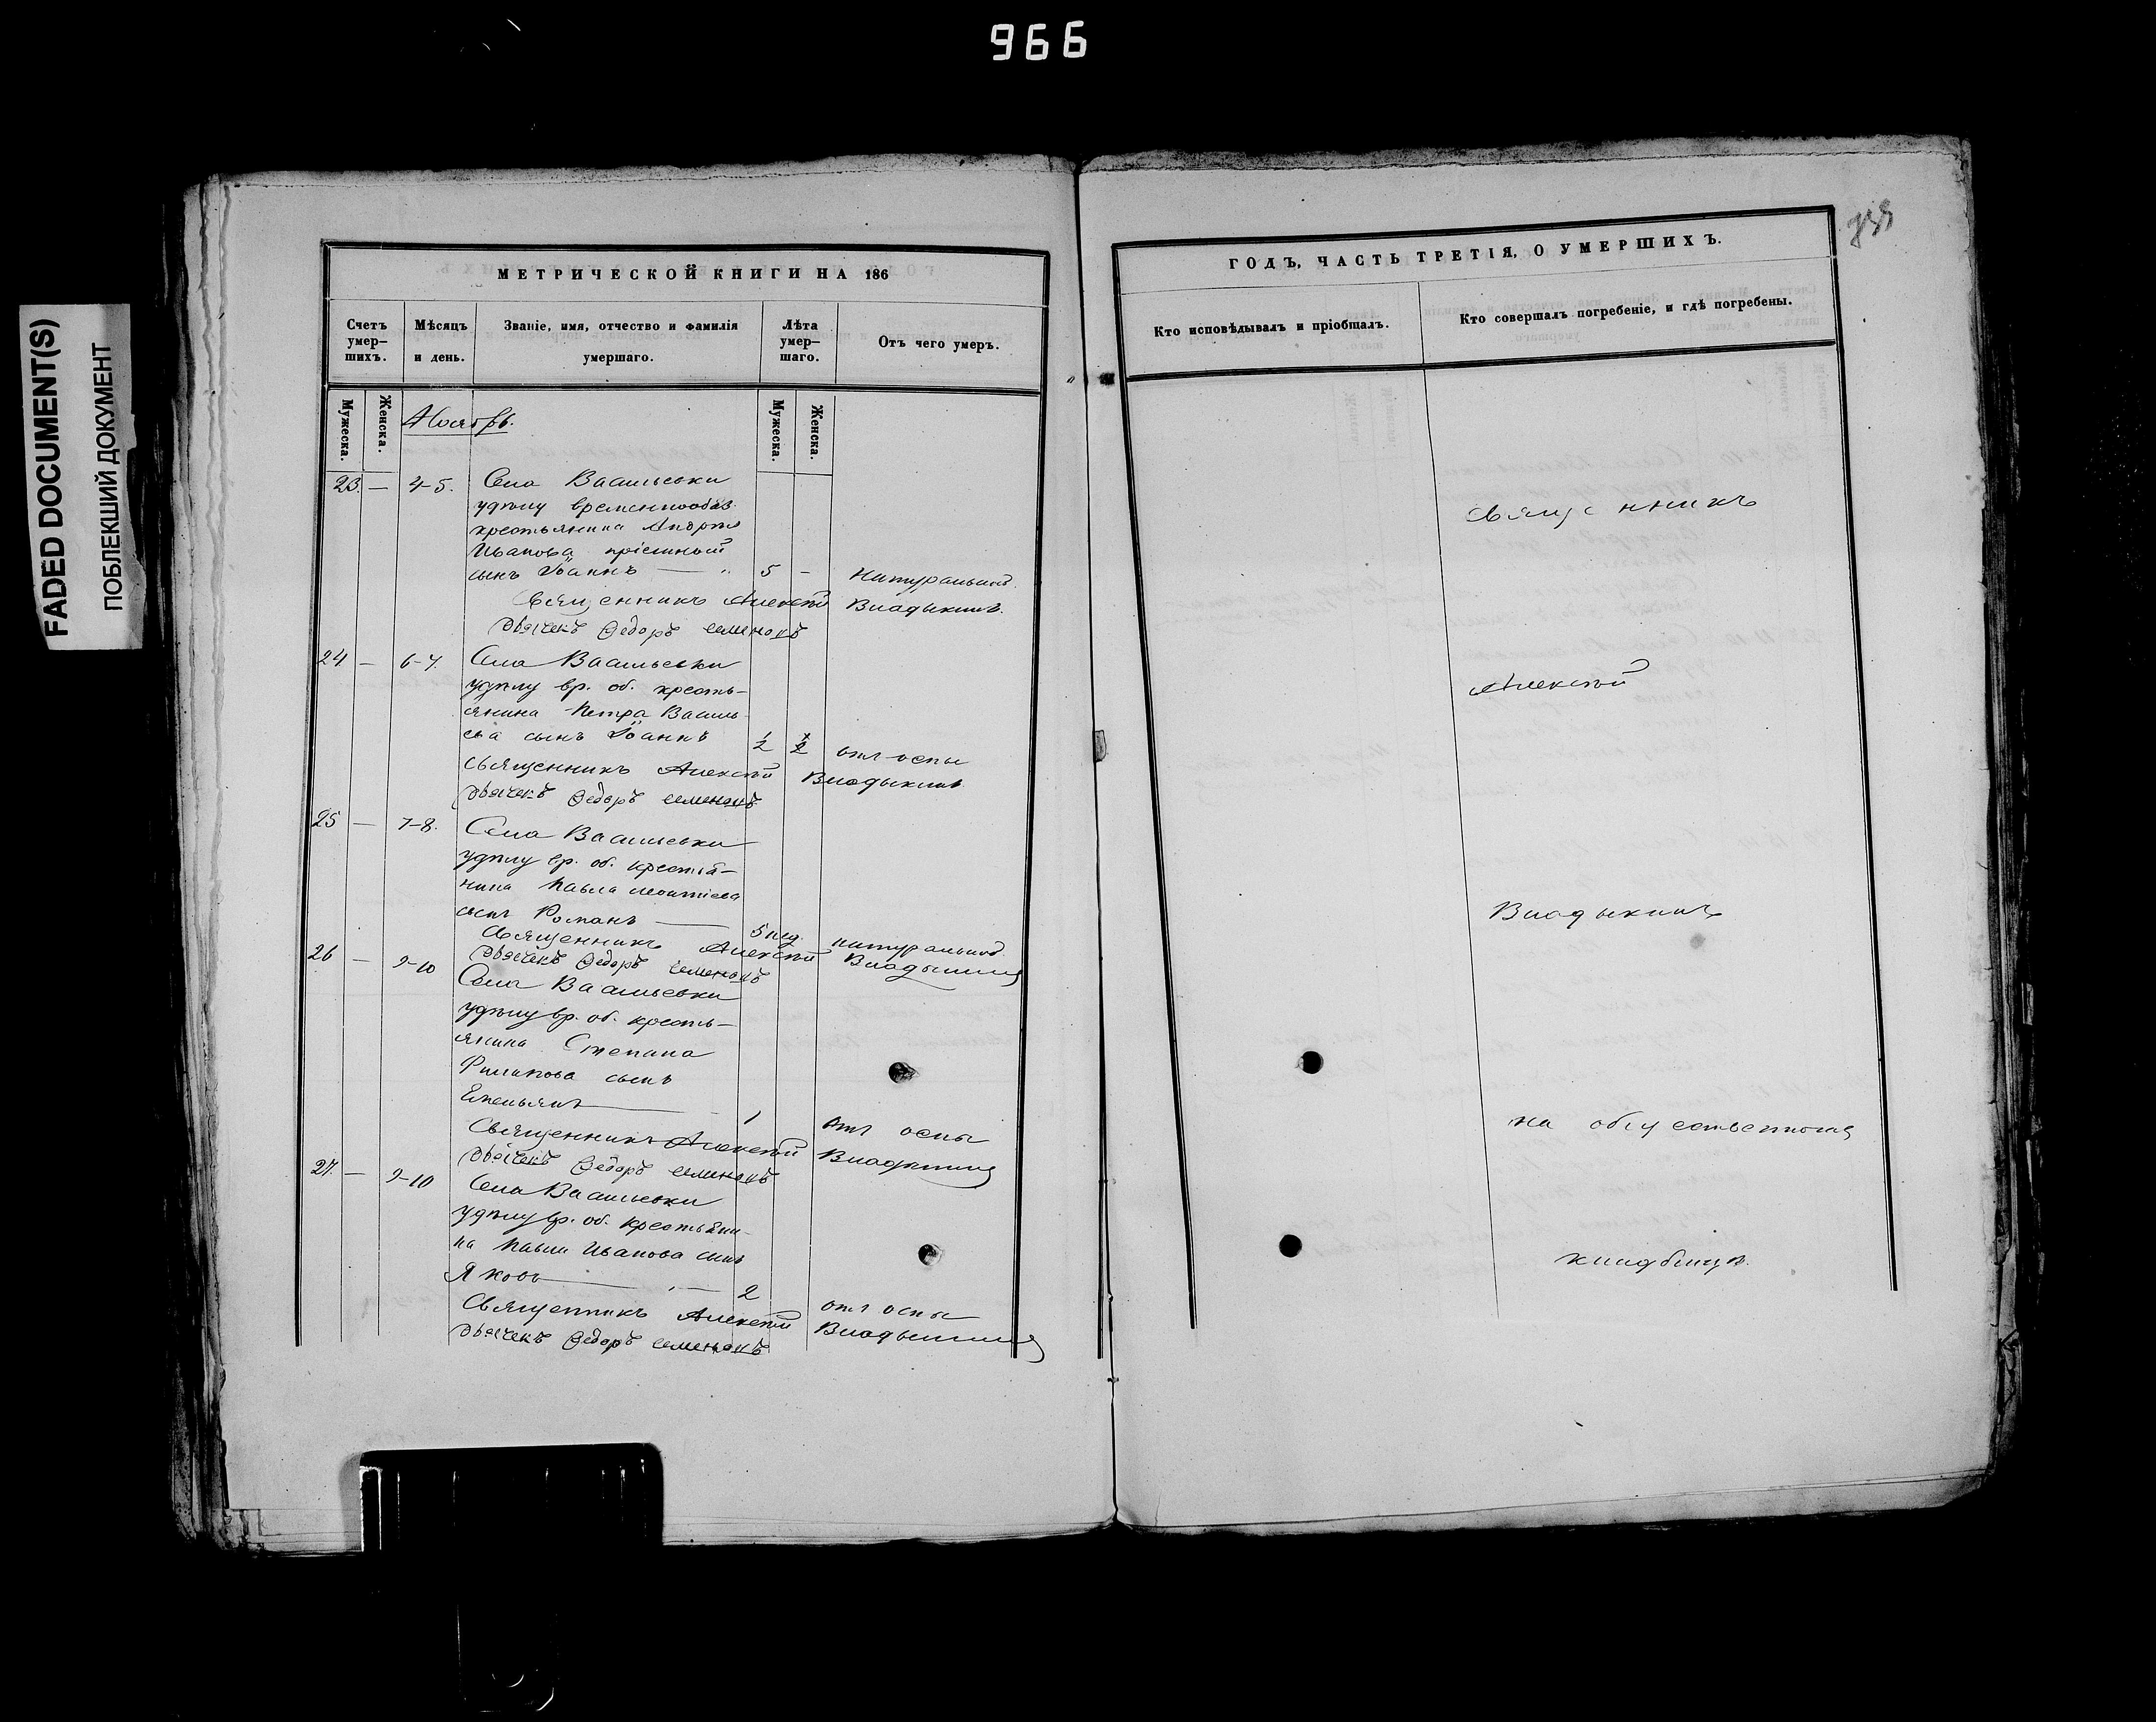 966
FADED DOCUMENT(S)
ПОБЛЕКШИЙ ДОКУМЕНТ
МЕТРИЧЕСКОЙ КНИГИ НА 186
Счетъ умер–шихъ.
Мѣсяцъ и день.
Званіе, имя, отчество и фамилія умершаго.
Лѣта умер–шаго.
Отъ чего умеръ.
Мужеска.
Женска.
Ноябрь.
Мужеска.
Женска.
23. — 4-5. Села Васильевки
удѣлу временнообяз.
крестьянина Андрея
Иванова пріемный
сынъ Іоаннъ — 5 — натуральной
Священникъ Алексѣй Владыкинъ
Дьячекъ Ѳедоръ Семеновъ
24 — 6-7. Села Васильевки
удѣлу вр. об. кресть-
янина Петра Василь-
ева сынъ Іоаннъ 1/2 отъ оспы
Священникъ Алексѣй Владыкинъ
Дьячекъ Ѳедоръ Семеновъ
25 — 7-8. Села Васильевки
удѣлу вр. об. крестья-
нина Павла
сынъ Романъ — 5 нед. натуральной
Священникъ Алексѣй Владыкинъ
Дьячекъ Ѳедоръ Семеновъ
26 — 9-10 Села Васильевки
удѣлу вр. об. кресть-
янина Степана
Филипова сынъ
Емельянъ — 1 отъ оспы
Священникъ Алексѣй Владыкинъ
Дьячекъ Ѳедоръ Семеновъ
27. — 9-10 Села Васильевки
удѣлу вр. об. крестьяни-
на Павла Иванова сынъ
Яковъ — 2 отъ оспы
Священникъ Алексѣй Владыкинъ
Дьячекъ Ѳедоръ Семеновъ
ГОДЪ, ЧАСТЬ ТРЕТІЯ, О УМЕРШИХЪ.
Кто исповѣдывалъ и пріобщалъ.
Кто совершалъ погребеніе, и гдѣ погребены.
Священникъ
Алексѣй
Владыкинъ
на общественномъ
кладбищѣ.